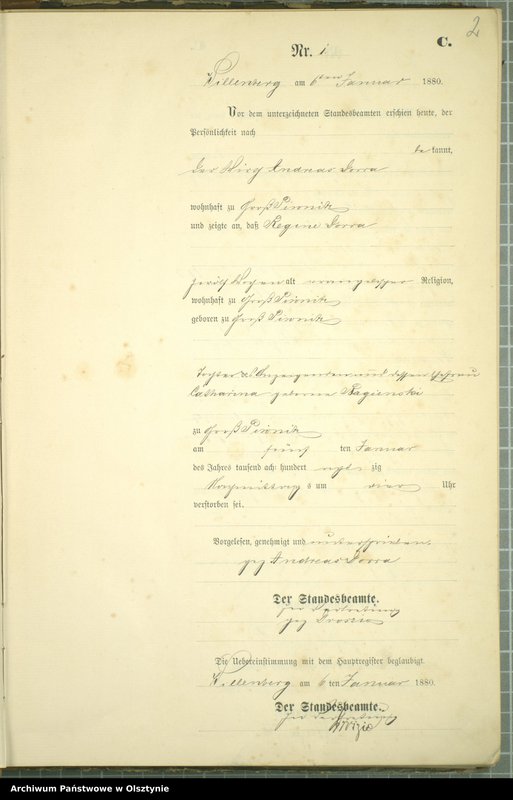 2
C.
Nr. 1
Willenberg am 6ten Januar 1880.
Vor dem unterzeichneten Standesbeamten erschien heute, der
Persönlichkeit nach
be kannt,
der Wirth Andreas Dorra
wohnhaft zu Groß Piwnitz
und zeigte an, daß Regine Dorra
zwölf Wochen alt evangelischer Religion,
wohnhaft zu Groß Piwnitz
geboren zu Groß Piwnitz
Tochter des Anzeigenden und dessen Ehefrau
Catharina geborene Bagienski
zu Groß Piwnitz
am fünf ten Januar
des Jahres tausend acht hundert acht zig
Nachmittag s um vier Uhr
verstorben sei.
Vorgelesen, genehmigt und unterschrieben.
gez Andreas Dorra
Der Standesbeamte.
In Vertretung
gez
Die Uebereinstimmung mit dem Hauptregister beglaubigt
Willenberg am 6 ten Januar 1880.
Der Standesbeamte.
In Vertretung
Archiwum Państwowe w Olsztynie